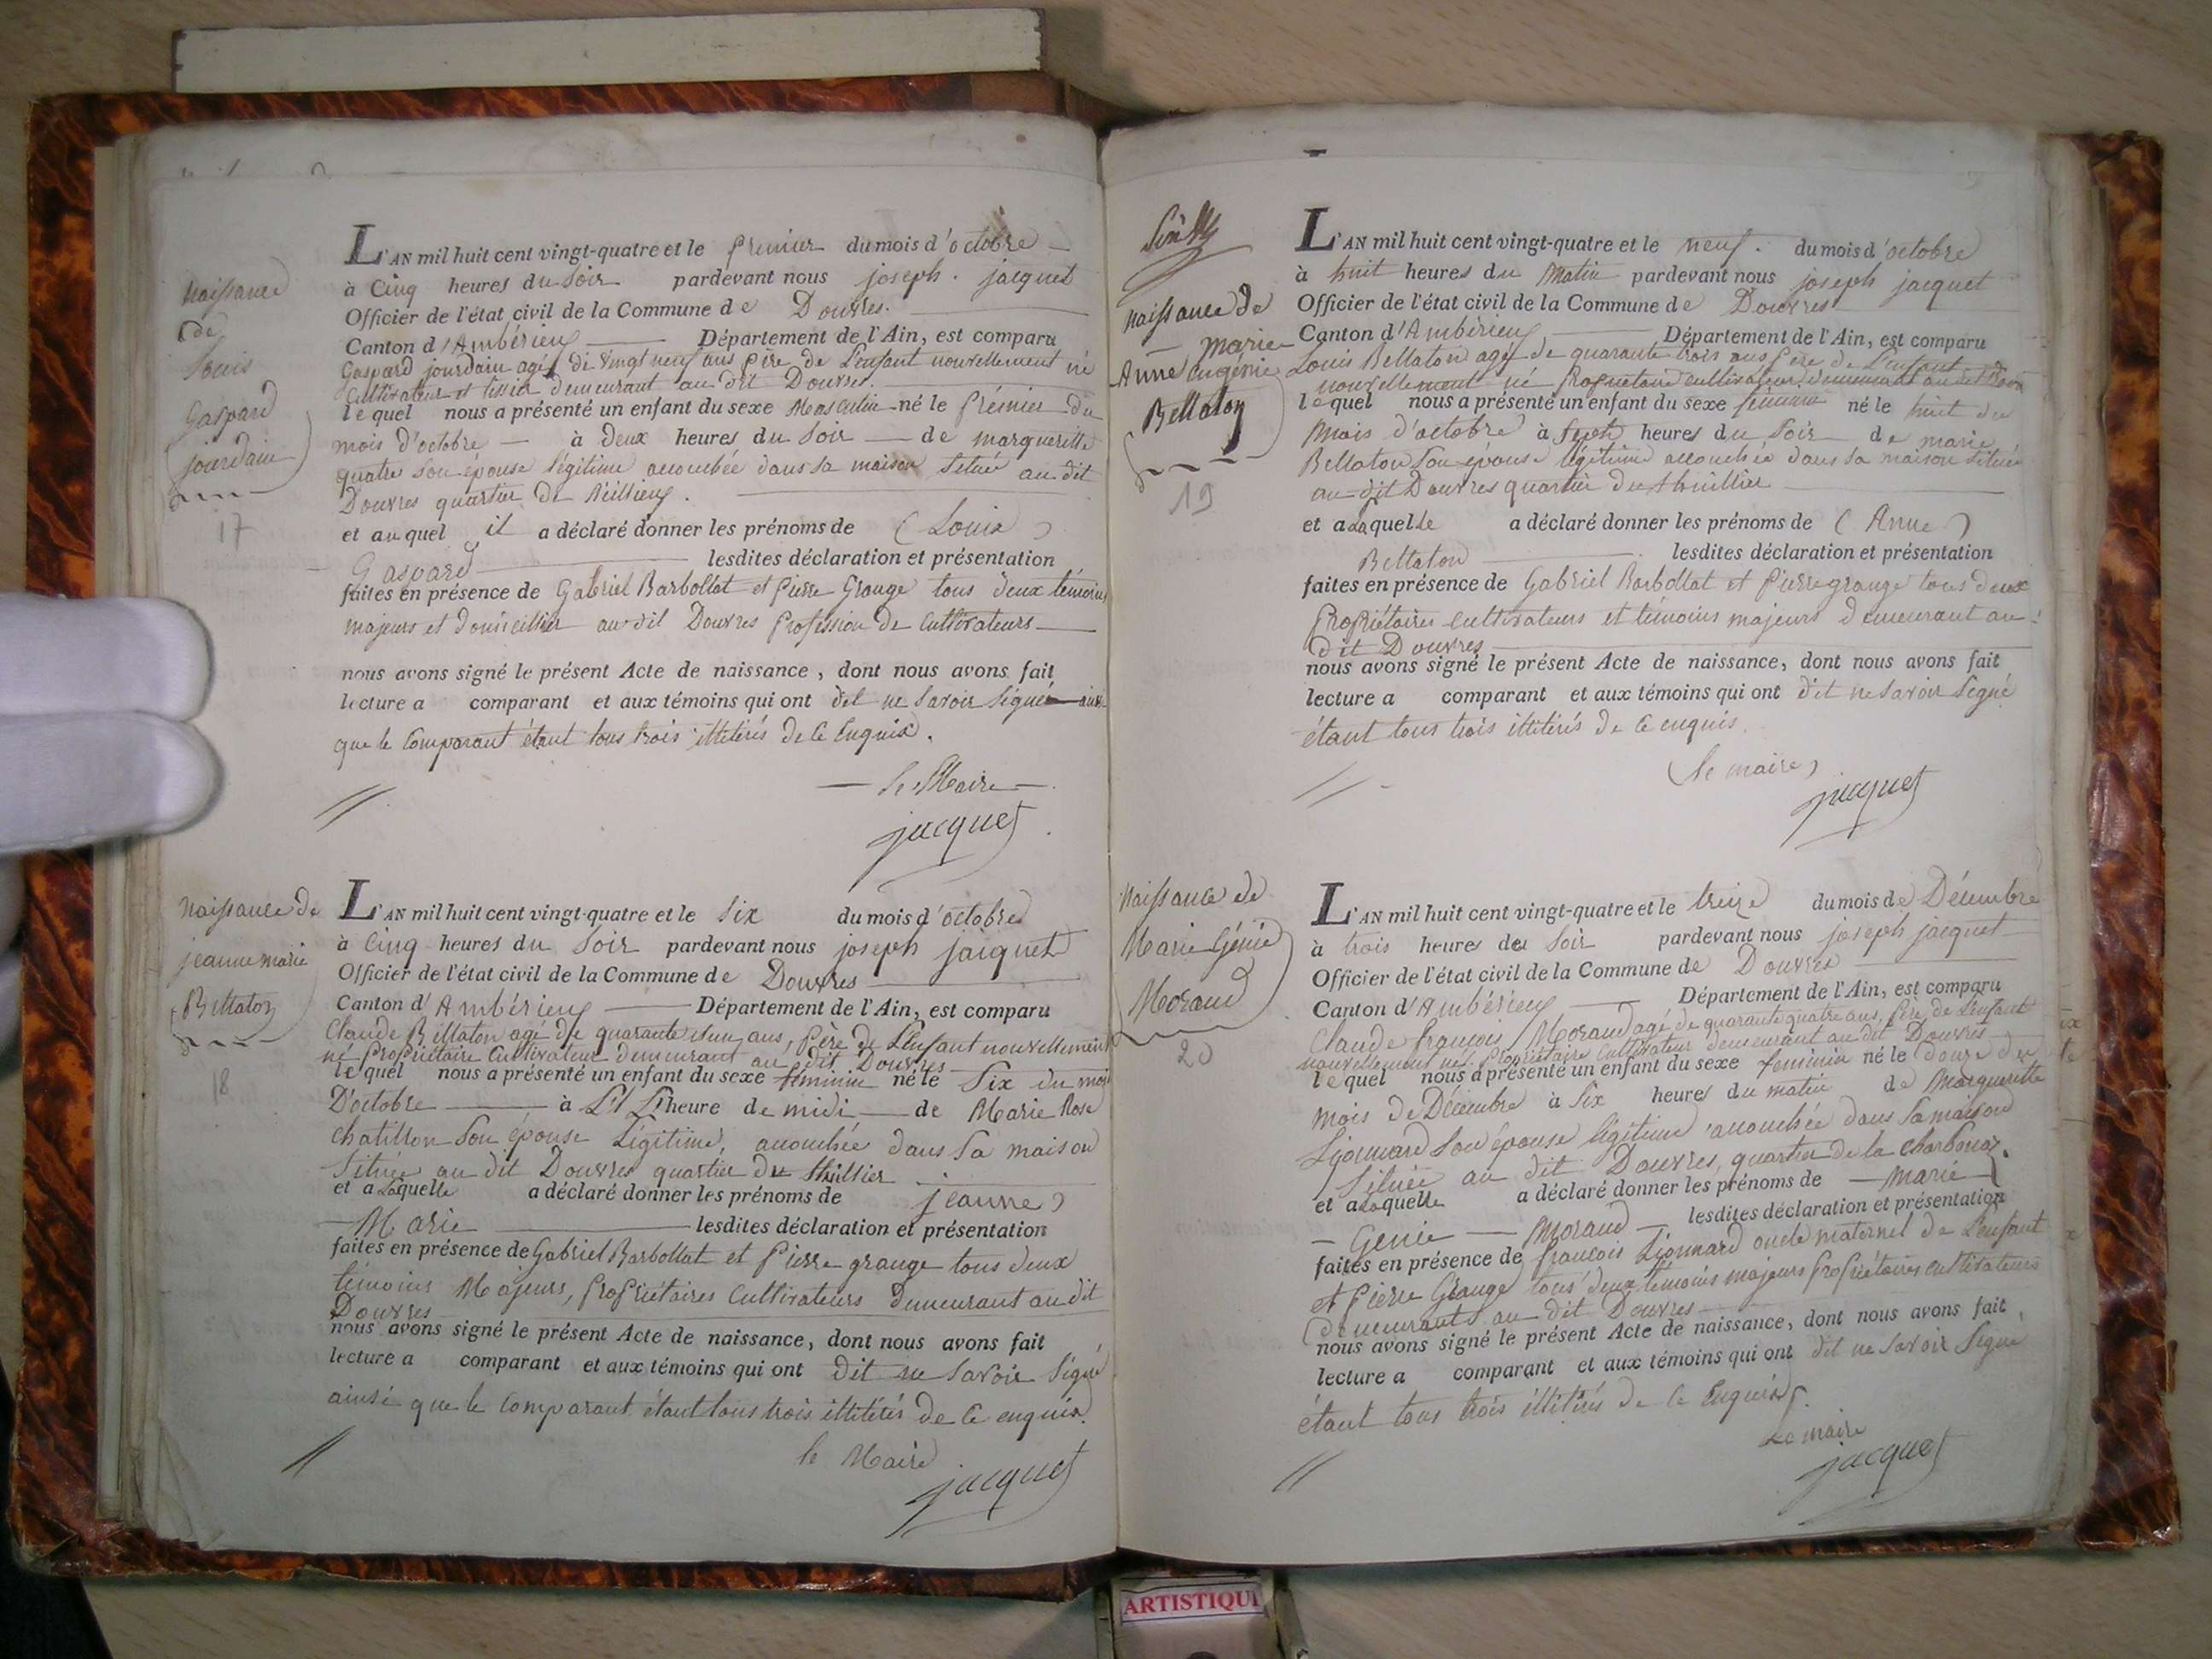 Naissance
de
Louis
Gaspard
jourdain
17
L'AN mil huit cent vingt-quatre et le premier du mois d'octobre
à Cinq heures du Soir pardevant nous joseph jacquet
Officier de l'état civil de la Commune de Douvres.
Canton d'Ambérieux Département de l'Ain, est comparu
Gaspard jourdain agé de vingt neuf ans père de L'enfant nouvellement né
Cultivateur et tissier demeurant au dit Douvres.
lequel nous a présenté un enfant du sexe Masculin né le prémier du
mois d'octobre à Deux heures du Soir de margueritte
quatre son épouse légitime accouchée dans sa maison située au dit
Douvres quartier de
et auquel il a déclaré donner les prénoms de (Louis)
Gaspard lesdites déclaration et présentation
faites en présence de Gabriel Barbollat et pierre Grange tous deux témoins
majeurs et domicillier au dit Douvres profession de Cultivateurs
nous avons signé le présent Acte de naissance, dont nous avons fait
lecture a comparant et aux témoins qui ont dit ne savoir signér ainsi
que le Comparant étant tous trois illitérés de ce Enquis.
Le Maire
jacquet
Naissance de
jeanne marie
Bellaton
18
L'AN mil huit cent vingt-quatre et le Six du mois d'octobre
à Cinq heures du Soir pardevant nous joseph jacquet
Officier de l'état civil de la Commune de Douvres
Canton d'Ambérieux Département de l'Ain, est comparu
Claude Bellaton agé de quarante et un ans, père de L'enfant nouvellement
né propriétaire Cultivateur demeurant au dit Douvres
lequel nous a présenté un enfant du sexe féminin né le Six du mois
D'octobre à L'heure de midi de Marie Rose
Chatillon Son épouse Légitime, accouchée dans Sa maison
Située au dit Douvres quartier du thuillier
et a Laquelle a déclaré donner les prénoms de jeanne
Marie lesdites déclaration et présentation
faites en présence de Gabriel Barbollat et pierre grange tous deux
témoins Majeurs, propriétaires Cultivateurs demeurant au dit
Douvres
nous avons signé le présent Acte de naissance, dont nous avons fait
lecture a comparant et aux témoins qui ont dit ne savoir Signé
ainsi que le comparant étant tous trois illitérés de ce enquis.
le Maire
jacquet
Naissance de
marie
Anne Eugénie
Bellaton
19
L'AN mil huit cent vingt-quatre et le neuf. du mois d'octobre
à huit heures du Matin pardevant nous joseph jacquet
Officier de l'état civil de la Commune de Douvres
Canton d'Ambérieux Département de l'Ain, est comparu
Louis Bellaton agé de quarante trois ans père de L'enfant
nouvellement né propriétaire cultivateur demeurant au dit
lequel nous a présenté un enfant du sexe feminin né le huit du
Mois d'octobre à Sept heures du Soir de marie
Bellaton Son épouse légitime accouchée dans sa maison située
au dit Douvres quartier du thuillier
et a Laquelle a déclaré donner les prénoms de (Anne)
Bellaton lesdites déclaration et présentation
faites en présence de Gabriel Barbollat et pierre grange tous deux
propriétaires cultivateurs et témoins majeurs demeurant au
dit Douvres
nous avons signé le présent Acte de naissance, dont nous avons fait
lecture a comparant et aux témoins qui ont dit ne savoir Signé
étant tous trois illitérés de ce enquis.
(le maire)
jacquet
Naissance de
Marie Génie
Moraud
20
L'AN mil huit cent vingt-quatre et le treize du mois de Décembre
à trois heures du Soir pardevant nous joseph jacquet
Officier de l'état civil de la Commune de Douvres
Canton d'Ambérieux Département de l'Ain, est comparu
Claude françois Moraud agé de quarante quatre ans, père de L'enfant
nouvellement né, propriétaire Cultivateur demeurant au dit Douvres
lequel nous a présenté un enfant du sexe feminin né le Douze du
mois de Décembre à Six heures du matin de Margueritte
Lionnard Son épouse légitime accouchée dans Sa maison
Située au dit Douvres, quartier de la Charbonas.
et a Laquelle a déclaré donner les prénoms de marie
Genie Moraud lesdites déclaration et présentation
faites en présence de françois Lionnard oncle maternel de L'enfant
et pierre Grange tous deux témoins majeurs propriétaires cultivateurs
demeurants au dit Douvres
nous avons signé le présent Acte de naissance, dont nous avons fait
lecture a comparant et aux témoins qui ont dit ne savoir Signé
étant tous trois illitérés de ce Enquis.
Le maire
jacquet
ARTISTIQU